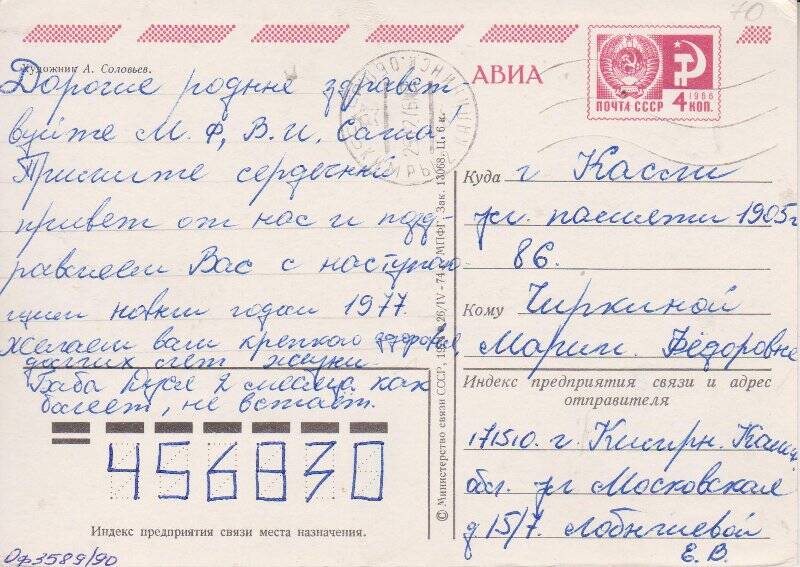 70
Художник А. Соловьев.
АВИА
1966
ПОЧТА СССР 4 КОП.
Дорогие родные здравст-
вуйте М. Ф, В. И, Саша!
Примите сердечный
привет от нас и позд-
равляем Вас с наступаю-
щим новым годом 1977.
Желаем вам крепкого здоровья,
долгих лет жизни.
Баба Дуся 2 месяца как
болеет, не встаёт.
Куда г Касли
ул. памяти 1905г
86.
Кому Чиркиной
Марии. Фёдоровне
Индекс предприятия связи и адрес
отправителя
171510. г. Кимры. Кали.
обл. ул Московская
д 15/7. Лобычевой
Е. В.
456830
Индекс предприятия связи места назначения.
Оф3589/90
© Министерство связи СССР, 26/IV-74 г. МПФГ. Зак. 13068. Ц. 6 к.